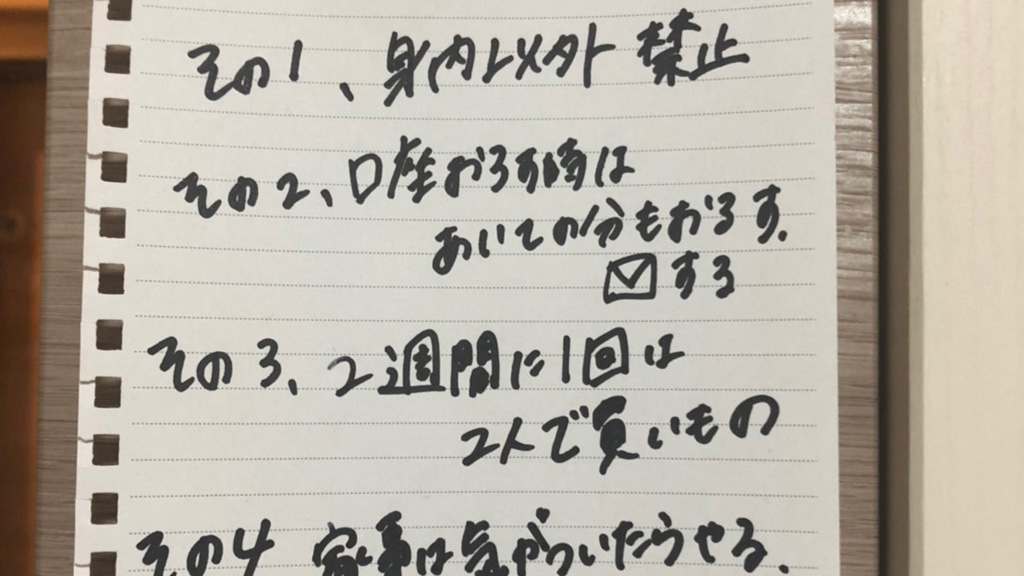 その1、身内以外禁止
その2、口座おろす時は
あいての分もおろす。
✉する
その3、2週間に1回は
2人で買いもの
その4 家事は気がついたらやる。